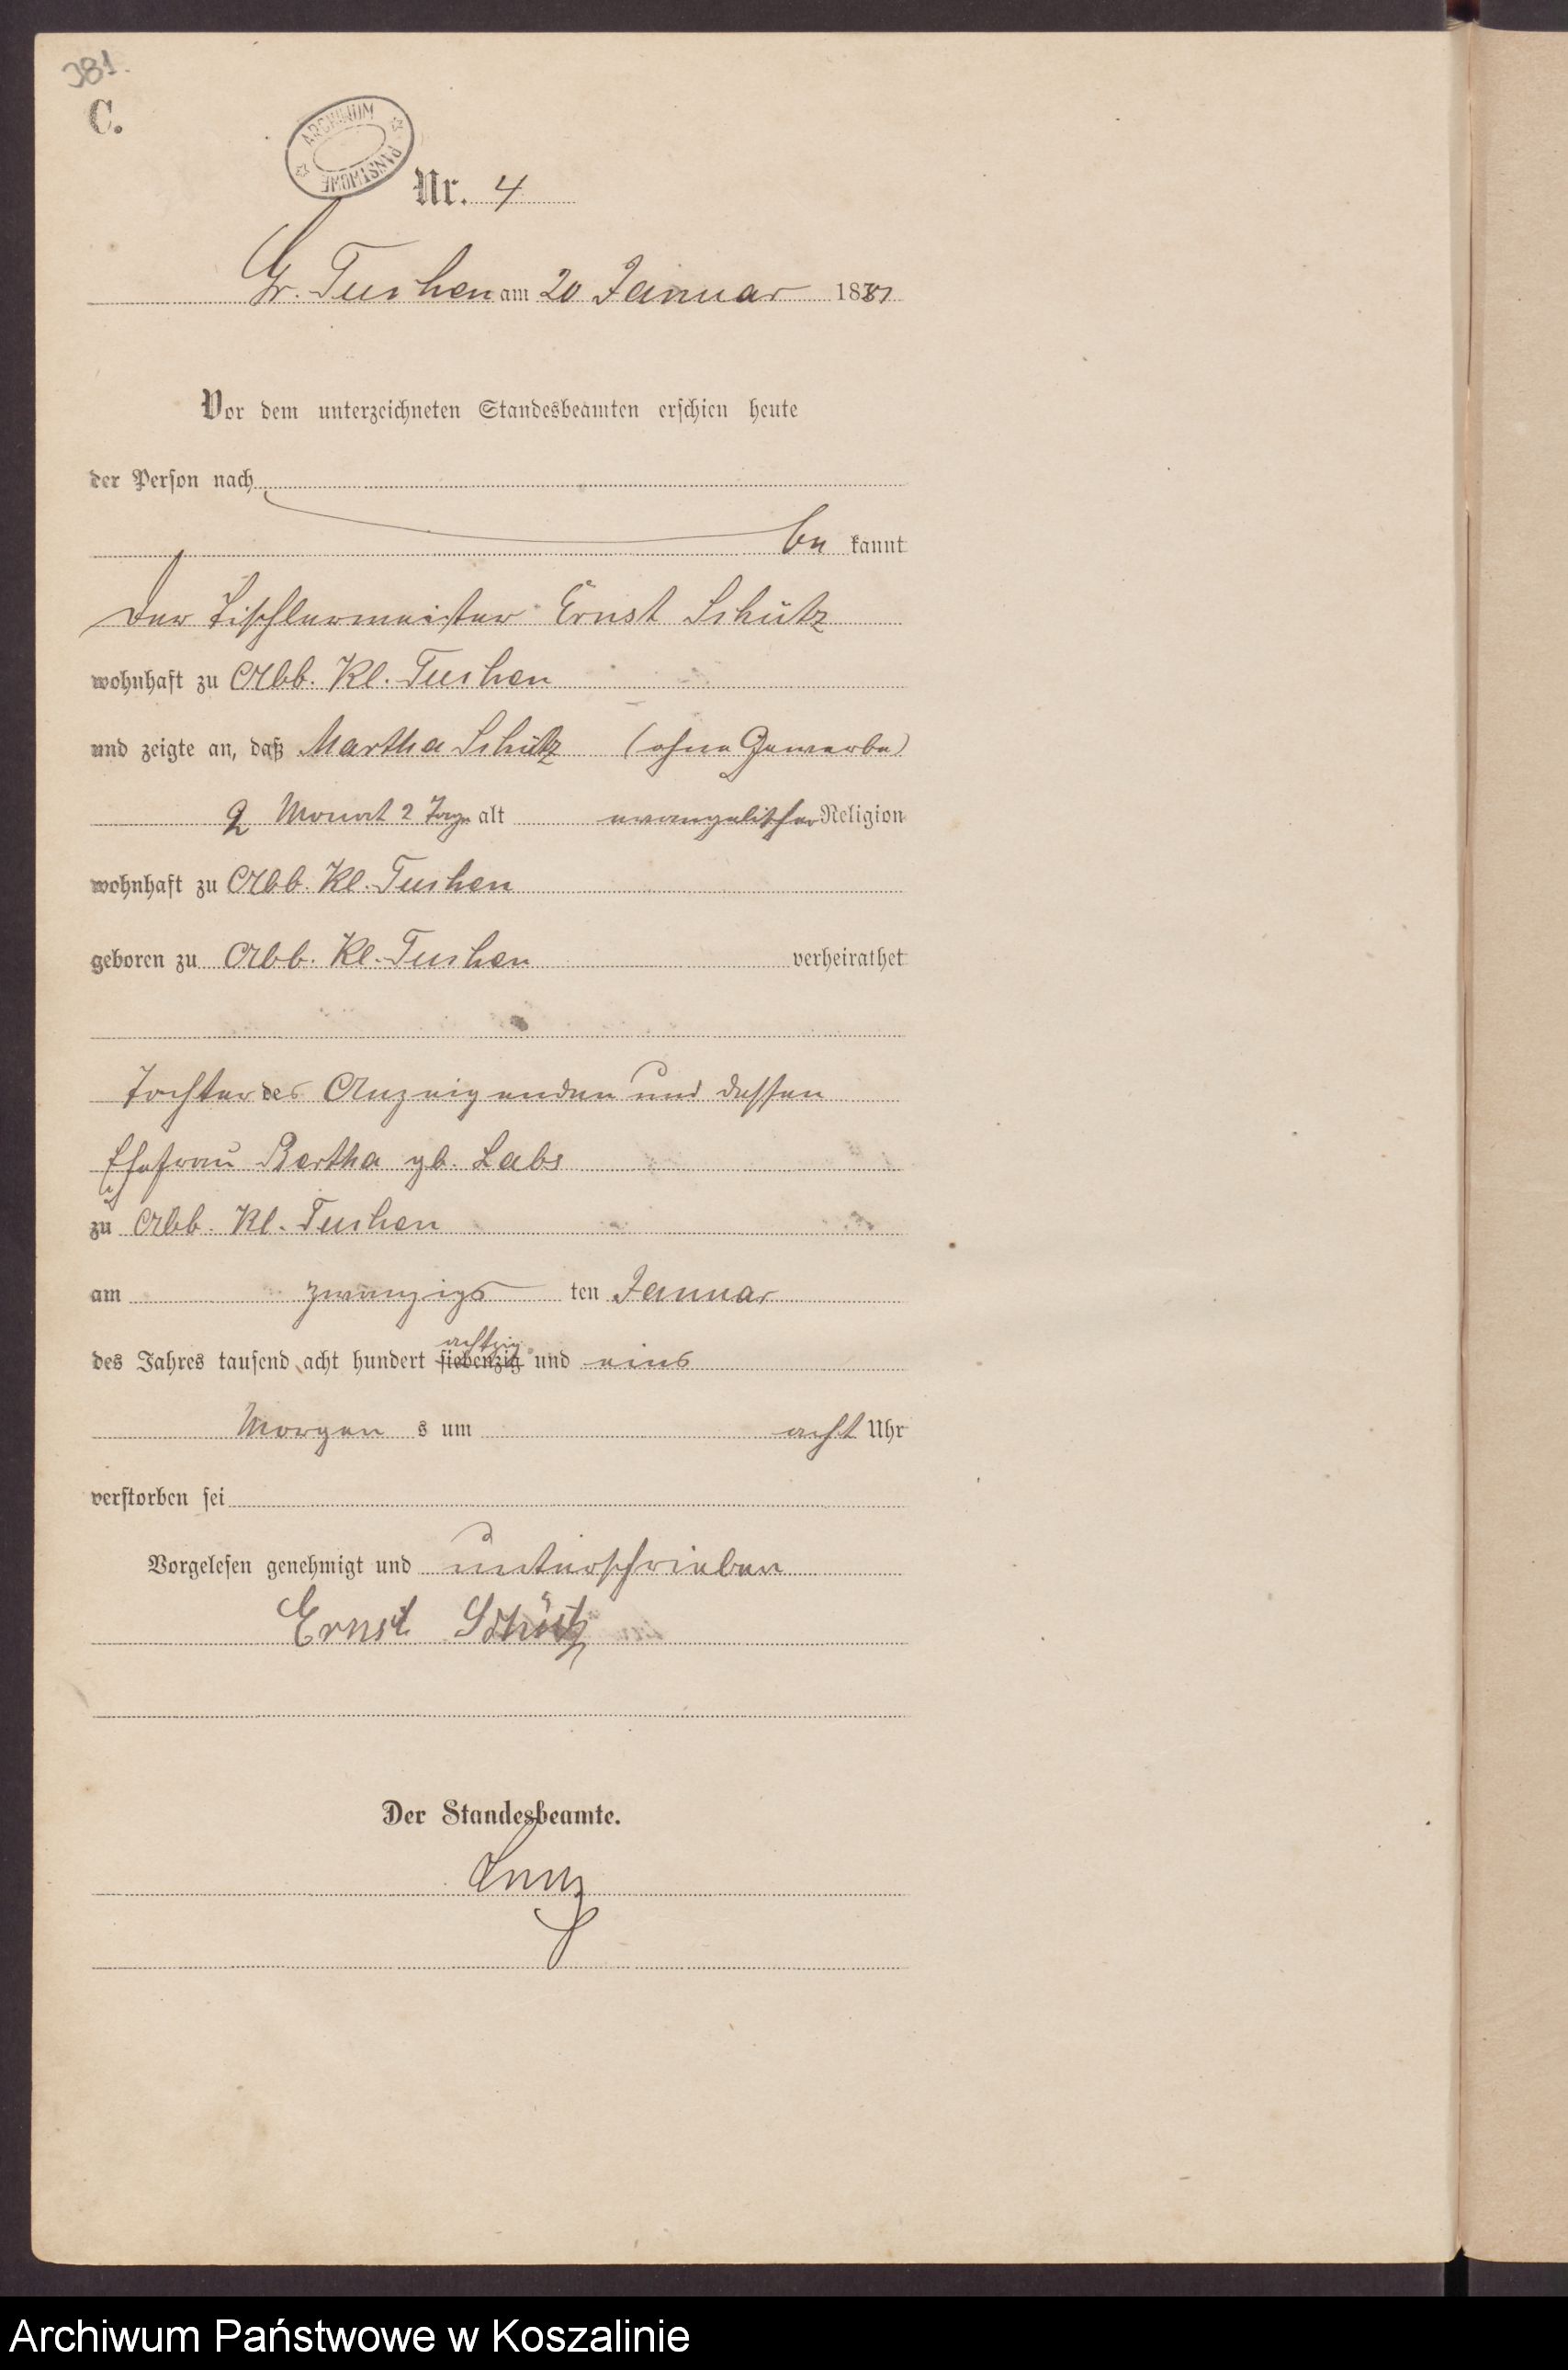 381.
C.
ARCHIWUM PAŃSTWOWE
Nr. 4
Gr. Tuchen am 20 Januar 1881
Vor dem unterzeichneten Standesbeamten erschien heute
der Person nach
be kannt
der Tischlermeister Ernst Schütz
wohnhaft zu Abb. Kl. Tuchen
und zeigte an, daß Martha Schütz (ohne Gewerbe)
Monat 2 Tage alt evangelischer Religion
wohnhaft zu Abb. Kl. Tuchen
geboren zu Abb. Kl. Tuchen verheirathet
Tochter des Anzeigenden und dessen
Ehefrau Bertha gb. Labs
zu Abb. Kl. Tuchen
am zwanzigs ten Januar
achtzig
des Jahres tausend acht hundert siebenzig und eins
Morgen s um acht Uhr
verstorben sei
Vorgelesen genehmigt und unterschrieben
Ernst Schütz
Der Standesbeamte.
Archiwum Państwowe w Koszalinie